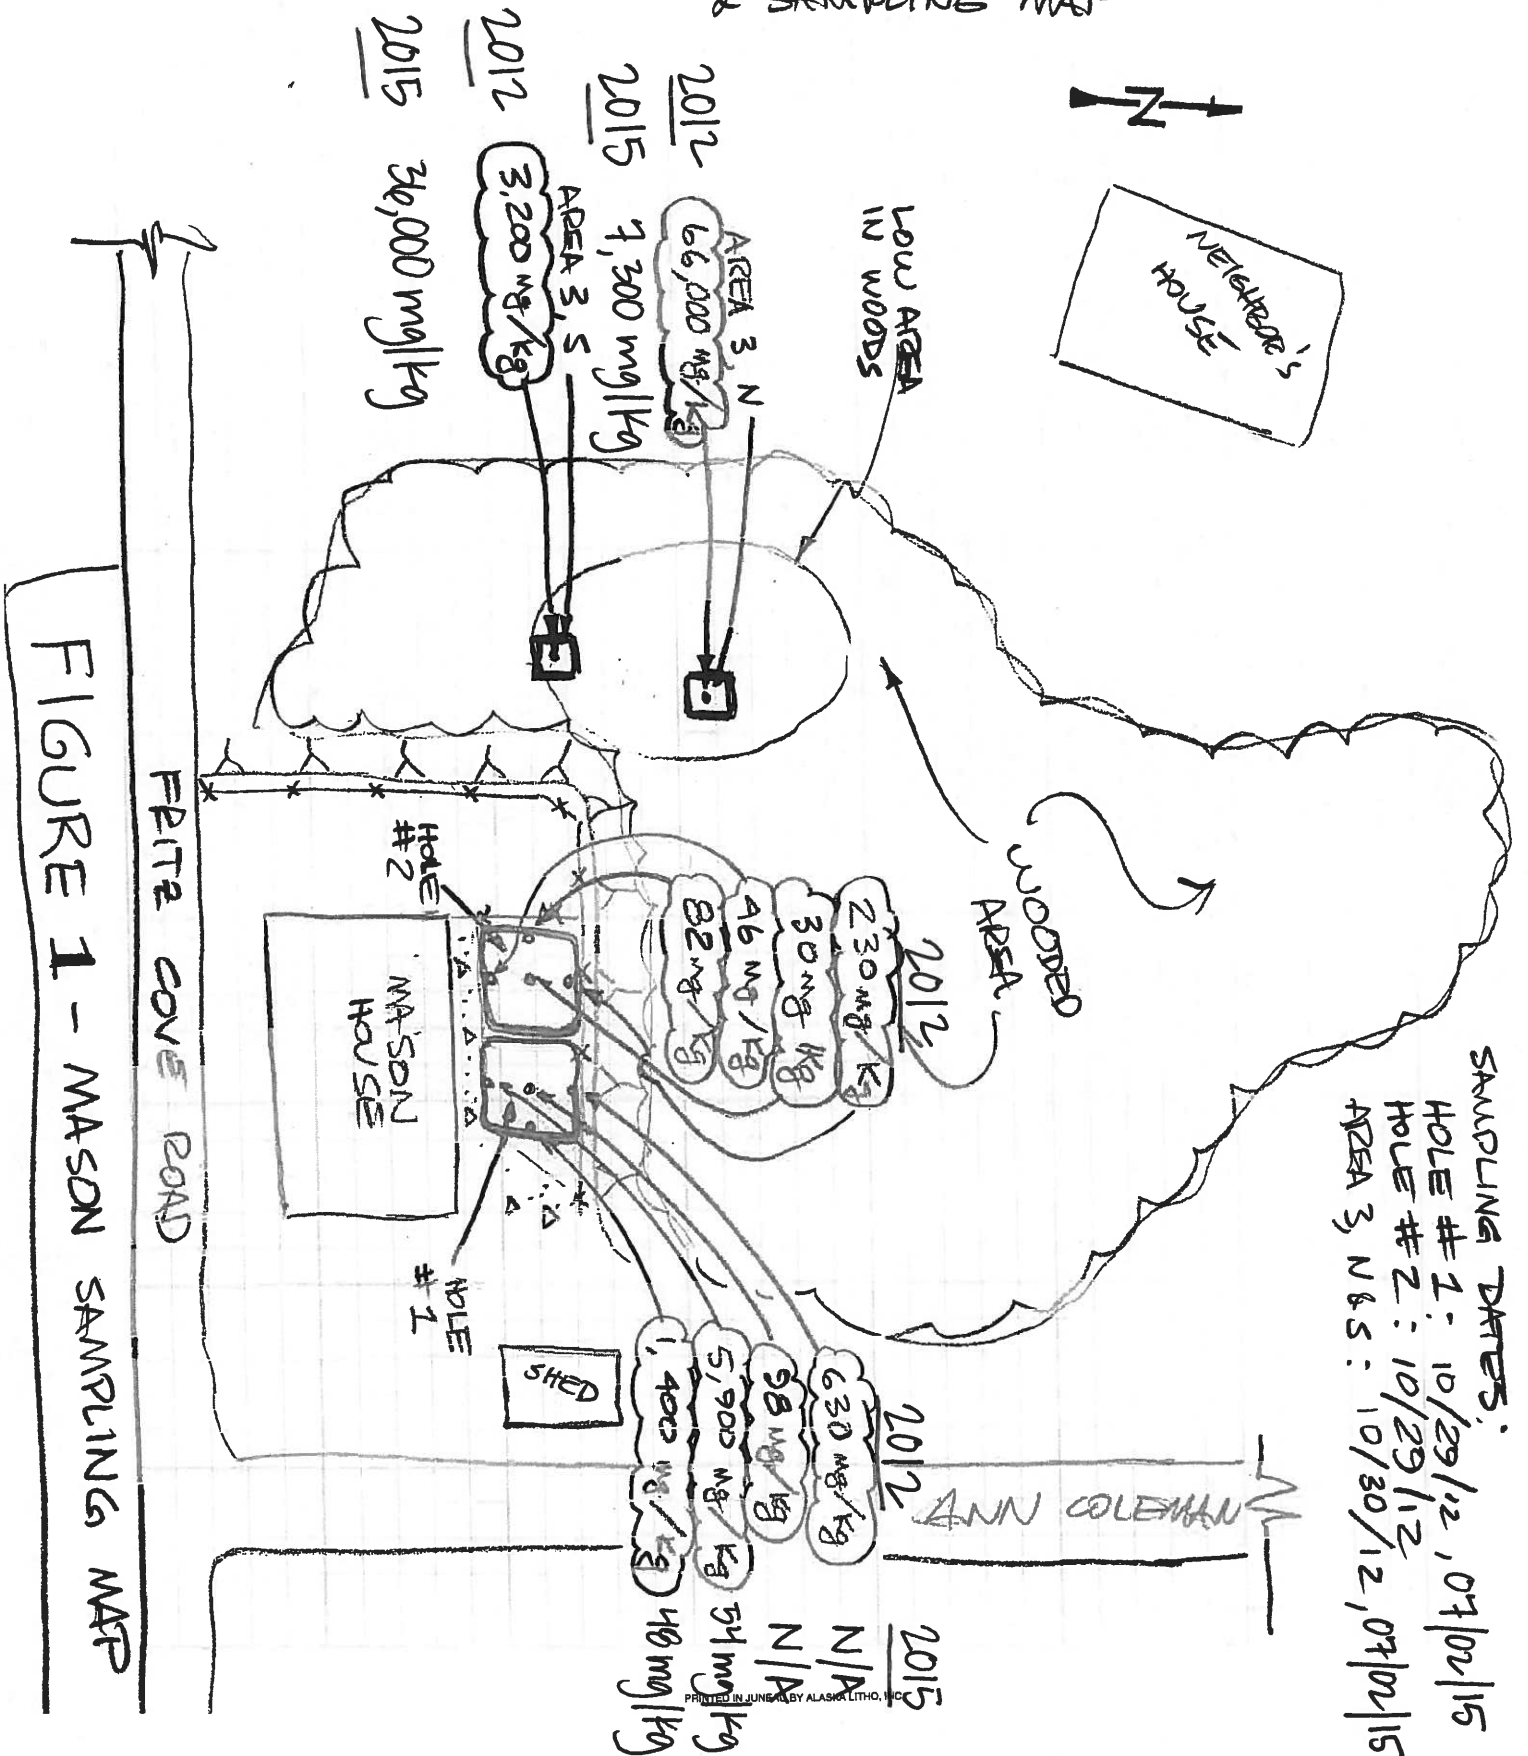 & SAMPLING MAP
N
NEIGHBOR'S
HOUSE
SAMPLING DATES:
HOLE #1: 10/29/12, 07/02/15
HOLE #2: 10/29/12
AREA 3, N&S: 10/30/12, 07/02/15
LOW AREA
IN WOODS
AREA 3, N
2012 66,000 mg/kg
2015 7,300 mg/kg
AREA 3, S
2012 3,200 mg/kg
2015 36,000 mg/kg
WOODED
AREA
2012
230 mg/kg
30 mg/kg
46 mg/kg
82 mg/kg
2012
630 mg/kg
98 mg/kg
5,900 mg/kg
1,400 mg/kg
2015
N/A
N/A
54 mg/kg
48 mg/kg
ANN COLEMAN
HOLE
#2
HOLE
#1
MASON
HOUSE
SHED
FRITZ COVE ROAD
FIGURE 1 - MASON SAMPLING MAP
PRINTED IN JUNEAU BY ALASKA LITHO, INC.